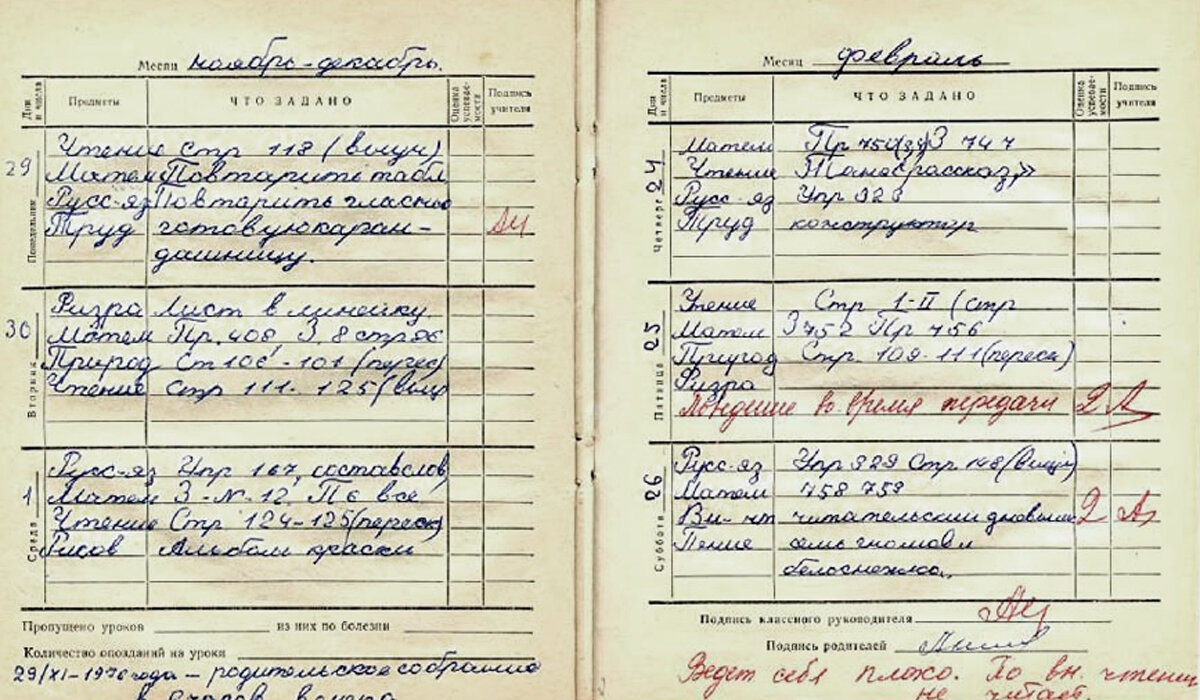 Месяц ноябрь-декабрь.
Дни и числа Предметы ЧТО ЗАДАНО Оценка успеваемости Подпись учителя
29 Понедельник
Чтение Стр 118 (выуч)
Матем Повтарить табл
Русс-яз Повтарить гласные
Труд готовую каран-
дашницу.
30 Вторник
Физра Лист в линейку
Матем Пр. 408, З, 8 стр 96
Природ Ст 100-101 (перес)
Чтение стр 111-125 (выуч
1 Среда
Русс-яз Упр 167, состав слов
Матем З-№-12, П 6 все
Чтение Стр 124-125 (переск)
Рисов Альбом краски
Пропущено уроков из них по болезни
Количество опозданий на уроки
29/XI-1976 года - родительское собрание
в вечера
Месяц февраль
Дни и числа Предметы ЧТО ЗАДАНО Оценка успеваемости Подпись учителя
Четверг 24
Матем Пр 750 З 747
Чтение
Русс-яз Упр 328
Труд конструктор
Пятница 25
Чтение Стр 1-II (стр
Матем З 752 Пр 756
Природ Стр. 109-111 (переск)
Физра
Поведение во время передачи 2
Суббота 26
Русс-яз Упр 329 Стр 148 (выуч)
Матем 758 759
Вн-чт читательский дневник 2
Пение семь гномов и
белоснежка.
Подпись классного руководителя
Подпись родителей
Ведет себя плохо. По вн. чтению
не